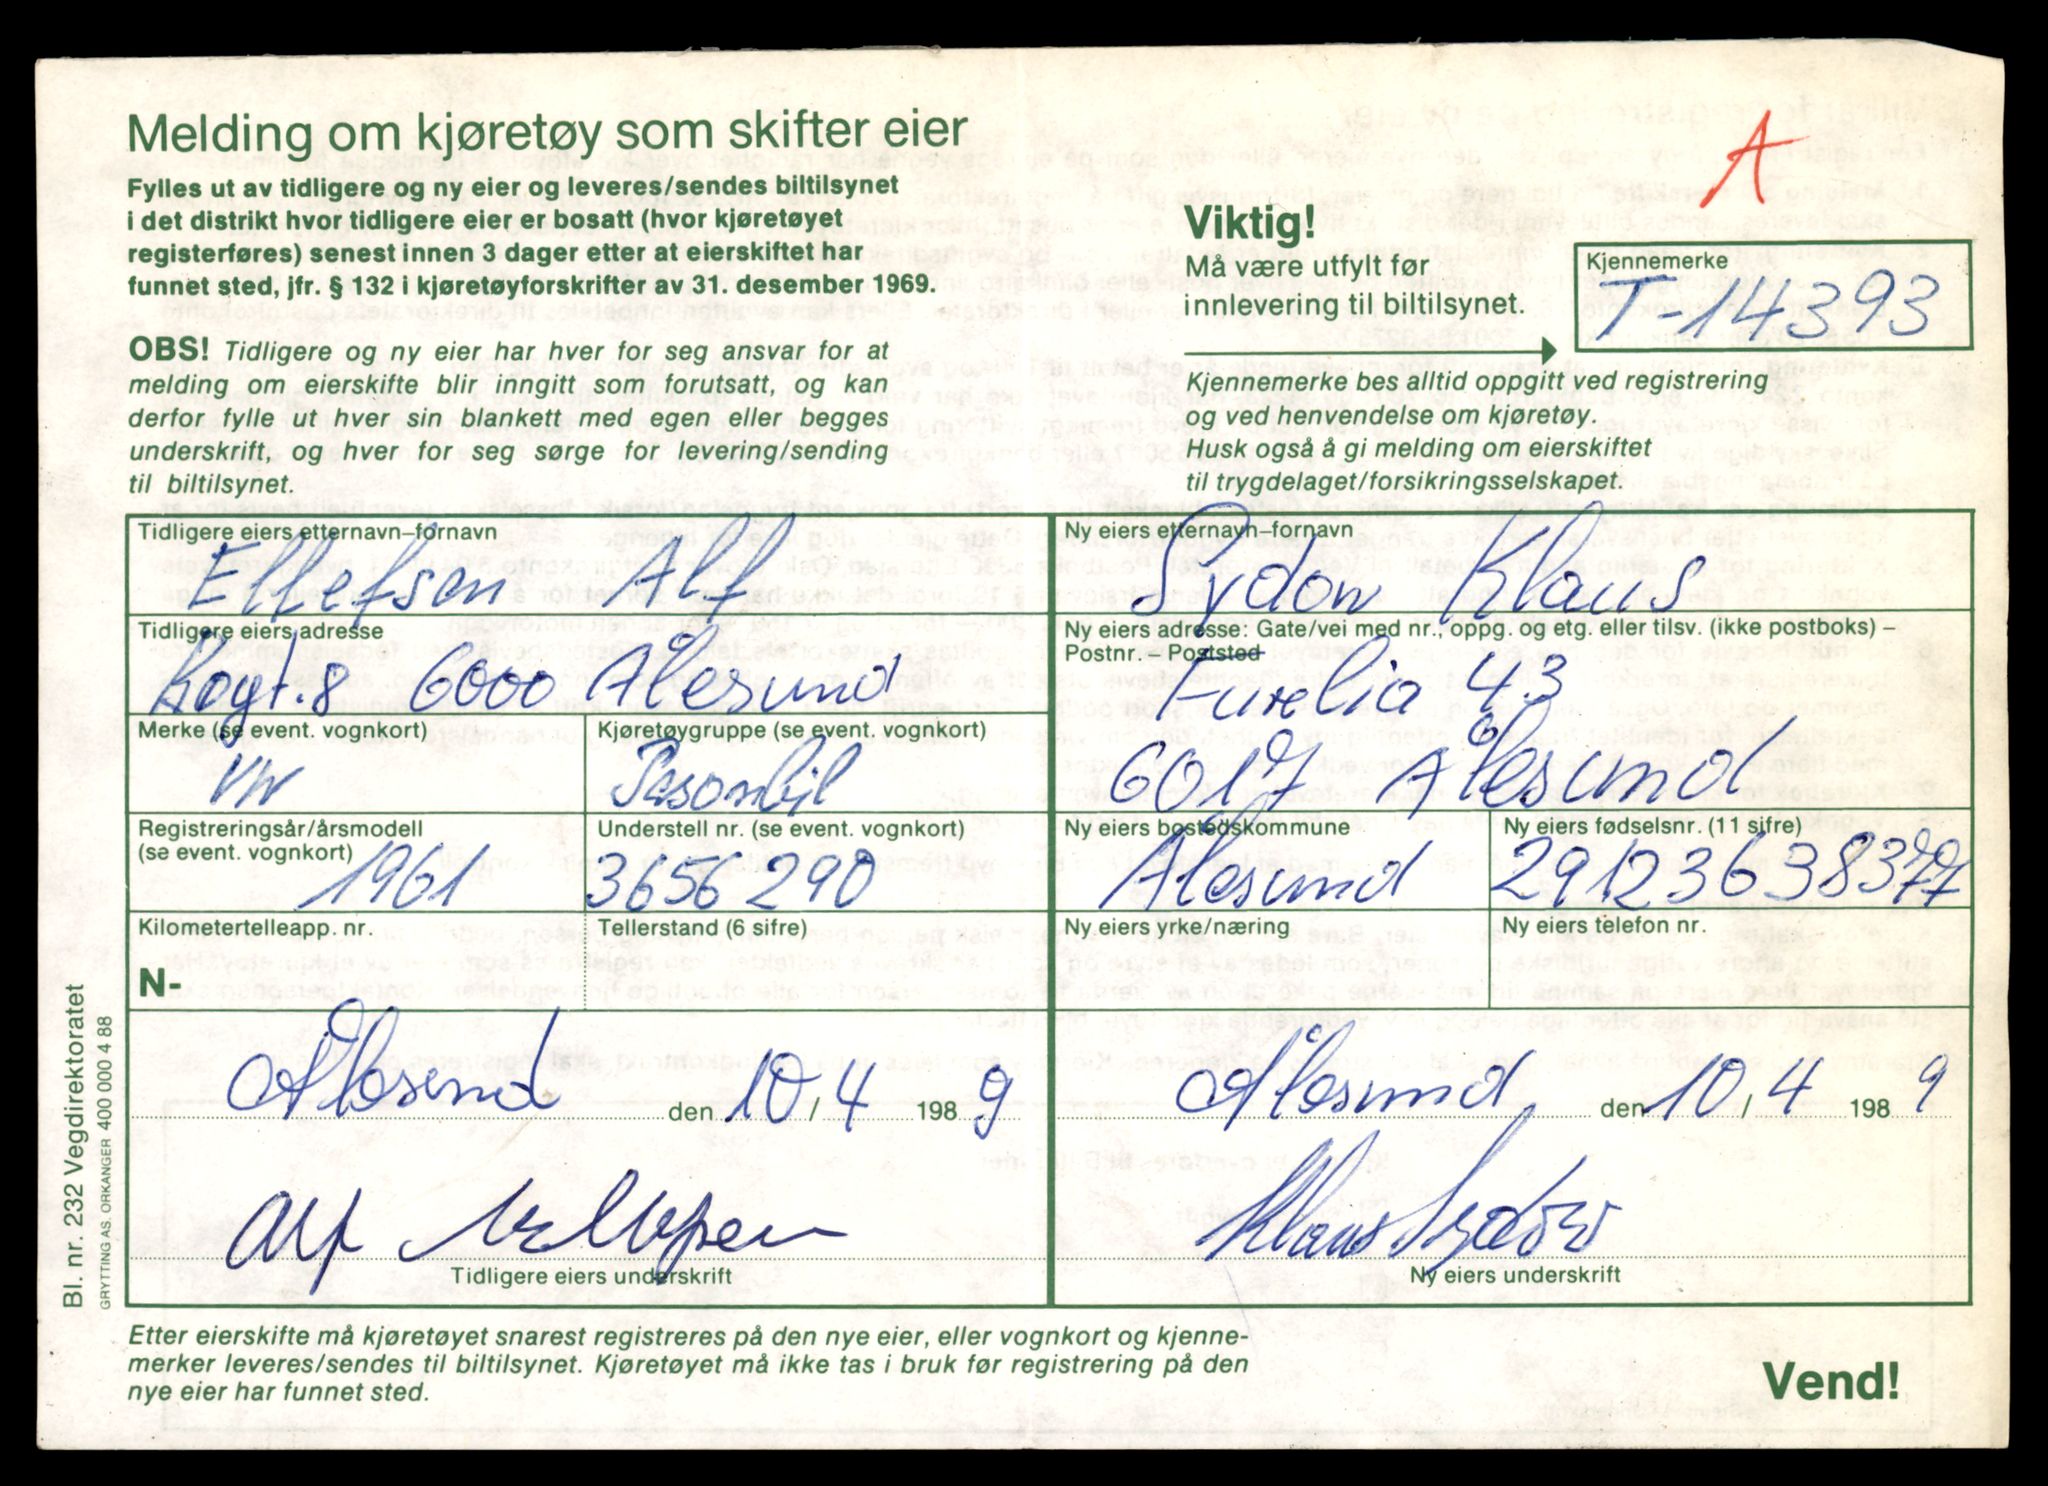 Melding om kjøretøy som skifter eier
Fylles ut av tidligere og ny eier og leveres/sendes biltilsynet
i det distrikt hvor tidligere eier er bosatt (hvor kjøretøyet
registerføres) senest innen 3 dager etter at eierskiftet har
funnet sted, jfr. § 132 i kjøretøyforskrifter av 31. desember 1969.
OBS! Tidligere og ny eier har hver for seg ansvar for at
melding om eierskifte blir inngitt som forutsatt, og kan
derfor fylle ut hver sin blankett med egen eller begges
underskrift, og hver for seg sørge for levering/sending
til biltilsynet.
A
Viktig!
Må være utfylt før
innlevering til biltilsynet.
Kjennemerke
T-14393
Kjennemerke bes alltid oppgitt ved registrering
og ved henvendelse om kjøretøy.
Husk også å gi melding om eierskiftet
til trygdelaget/forsikringsselskapet.
Tidligere eiers etternavn–fornavn
Ellefsen Alf
Tidligere eiers adresse
6000 Ålesund
Merke (se event. vognkort)
VW
Kjøretøygruppe (se event. vognkort)
Personbil
Registreringsår/årsmodell
(se event. vognkort)
1961
Understell nr. (se event. vognkort)
3656290
Kilometertelleapp. nr.
N-
Tellerstand (6 sifre)
Ålesund den 10/4 1989
Alf Ellefsen
Tidligere eiers underskrift
Ny eiers etternavn–fornavn
Sydow Klaus
Ny eiers adresse: Gate/vei med nr., oppg. og etg. eller tilsv. (ikke postboks) –
Postnr. – Poststed
Furelia 43
6017 Ålesund
Ny eiers bostedskommune
Ålesund
Ny eiers fødselsnr. (11 sifre)
291236383
Ny eiers yrke/næring
Ny eiers telefon nr.
Ålesund den 10/4 1989
Klaus Sydow
Ny eiers underskrift
Bl. nr. 232 Vegdirektoratet
GRYTTING AS. ORKANGER 400 000 4 88
Etter eierskifte må kjøretøyet snarest registreres på den nye eier, eller vognkort og kjenne-
merker leveres/sendes til biltilsynet. Kjøretøyet må ikke tas i bruk før registrering på den
nye eier har funnet sted.
Vend!